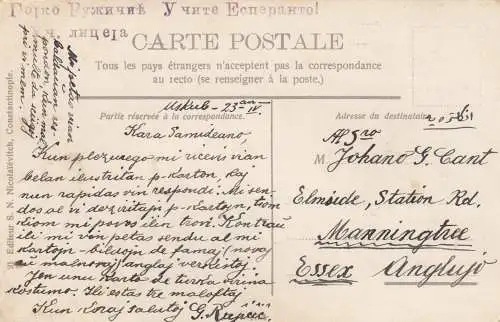 Горко Ружичић Учите Есперанто!
уч. лицеја
CARTE POSTALE
Tous les pays étrangers n'acceptent pas la correspondance
au recto (se renseigner à la poste.)
Partie réservée à la correspondance.
Adresse du destinataire
Editeur S. N. Nicolaïévitch, Constantinople.
Mi petas vian
multe da
pri vi mem.
Uskub - 23 an IV.
Kara Samideano,
Kun plezurego mi ricevis vian
belan ilustritan p. karton, kaj
nun rapidas vin respondi. Mi sen-
dos al vi deziritajn p-kartojn, tiom
tiom mi povos ilin trovi. Kontraŭ
ili mi vin petas sendu al mi
kartojn - bildojn de famaj novaj
aŭ malnovaj anglaj verkistoj.
Jen unu karto de turka virina
kostumo. Ili estas tre maloftaj.
Kun koraj salutoj G.
M Johano G. Cant
Elmside, Station Rd.
Manningtree
Essex Anglujo